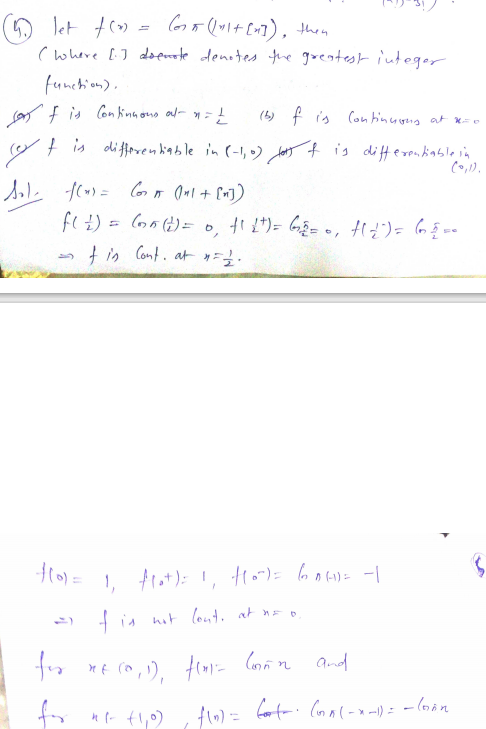 4.) let f(x) = Cos π(|x| + [x]), then
(where [.] denotes the greatest integer
function).
(a) f is continuous at x = 1/2 (b) f is Continuous at x=0
(c) f is differentiable in (-1,0) (d) f is differentiable in
(0,1).
Sol. f(x) = Cos π (|x| + [x])
f(1/2) = Cos π(1/2) = 0, f(1/2⁺) = Cos π/2 = 0, f(1/2⁻) = Cos π/2 = 0
⇒ f is Cont. at x = 1/2.
f(0) = 1, f(0⁺) = 1, f(0⁻) = Cos π(-1) = -1
⇒ f is not Cont. at x = 0.
for x ∈ (0,1), f(x) = Cos πx and
for x ∈ (-1,0), f(x) = Cos π(-x-1) = -Cos πx